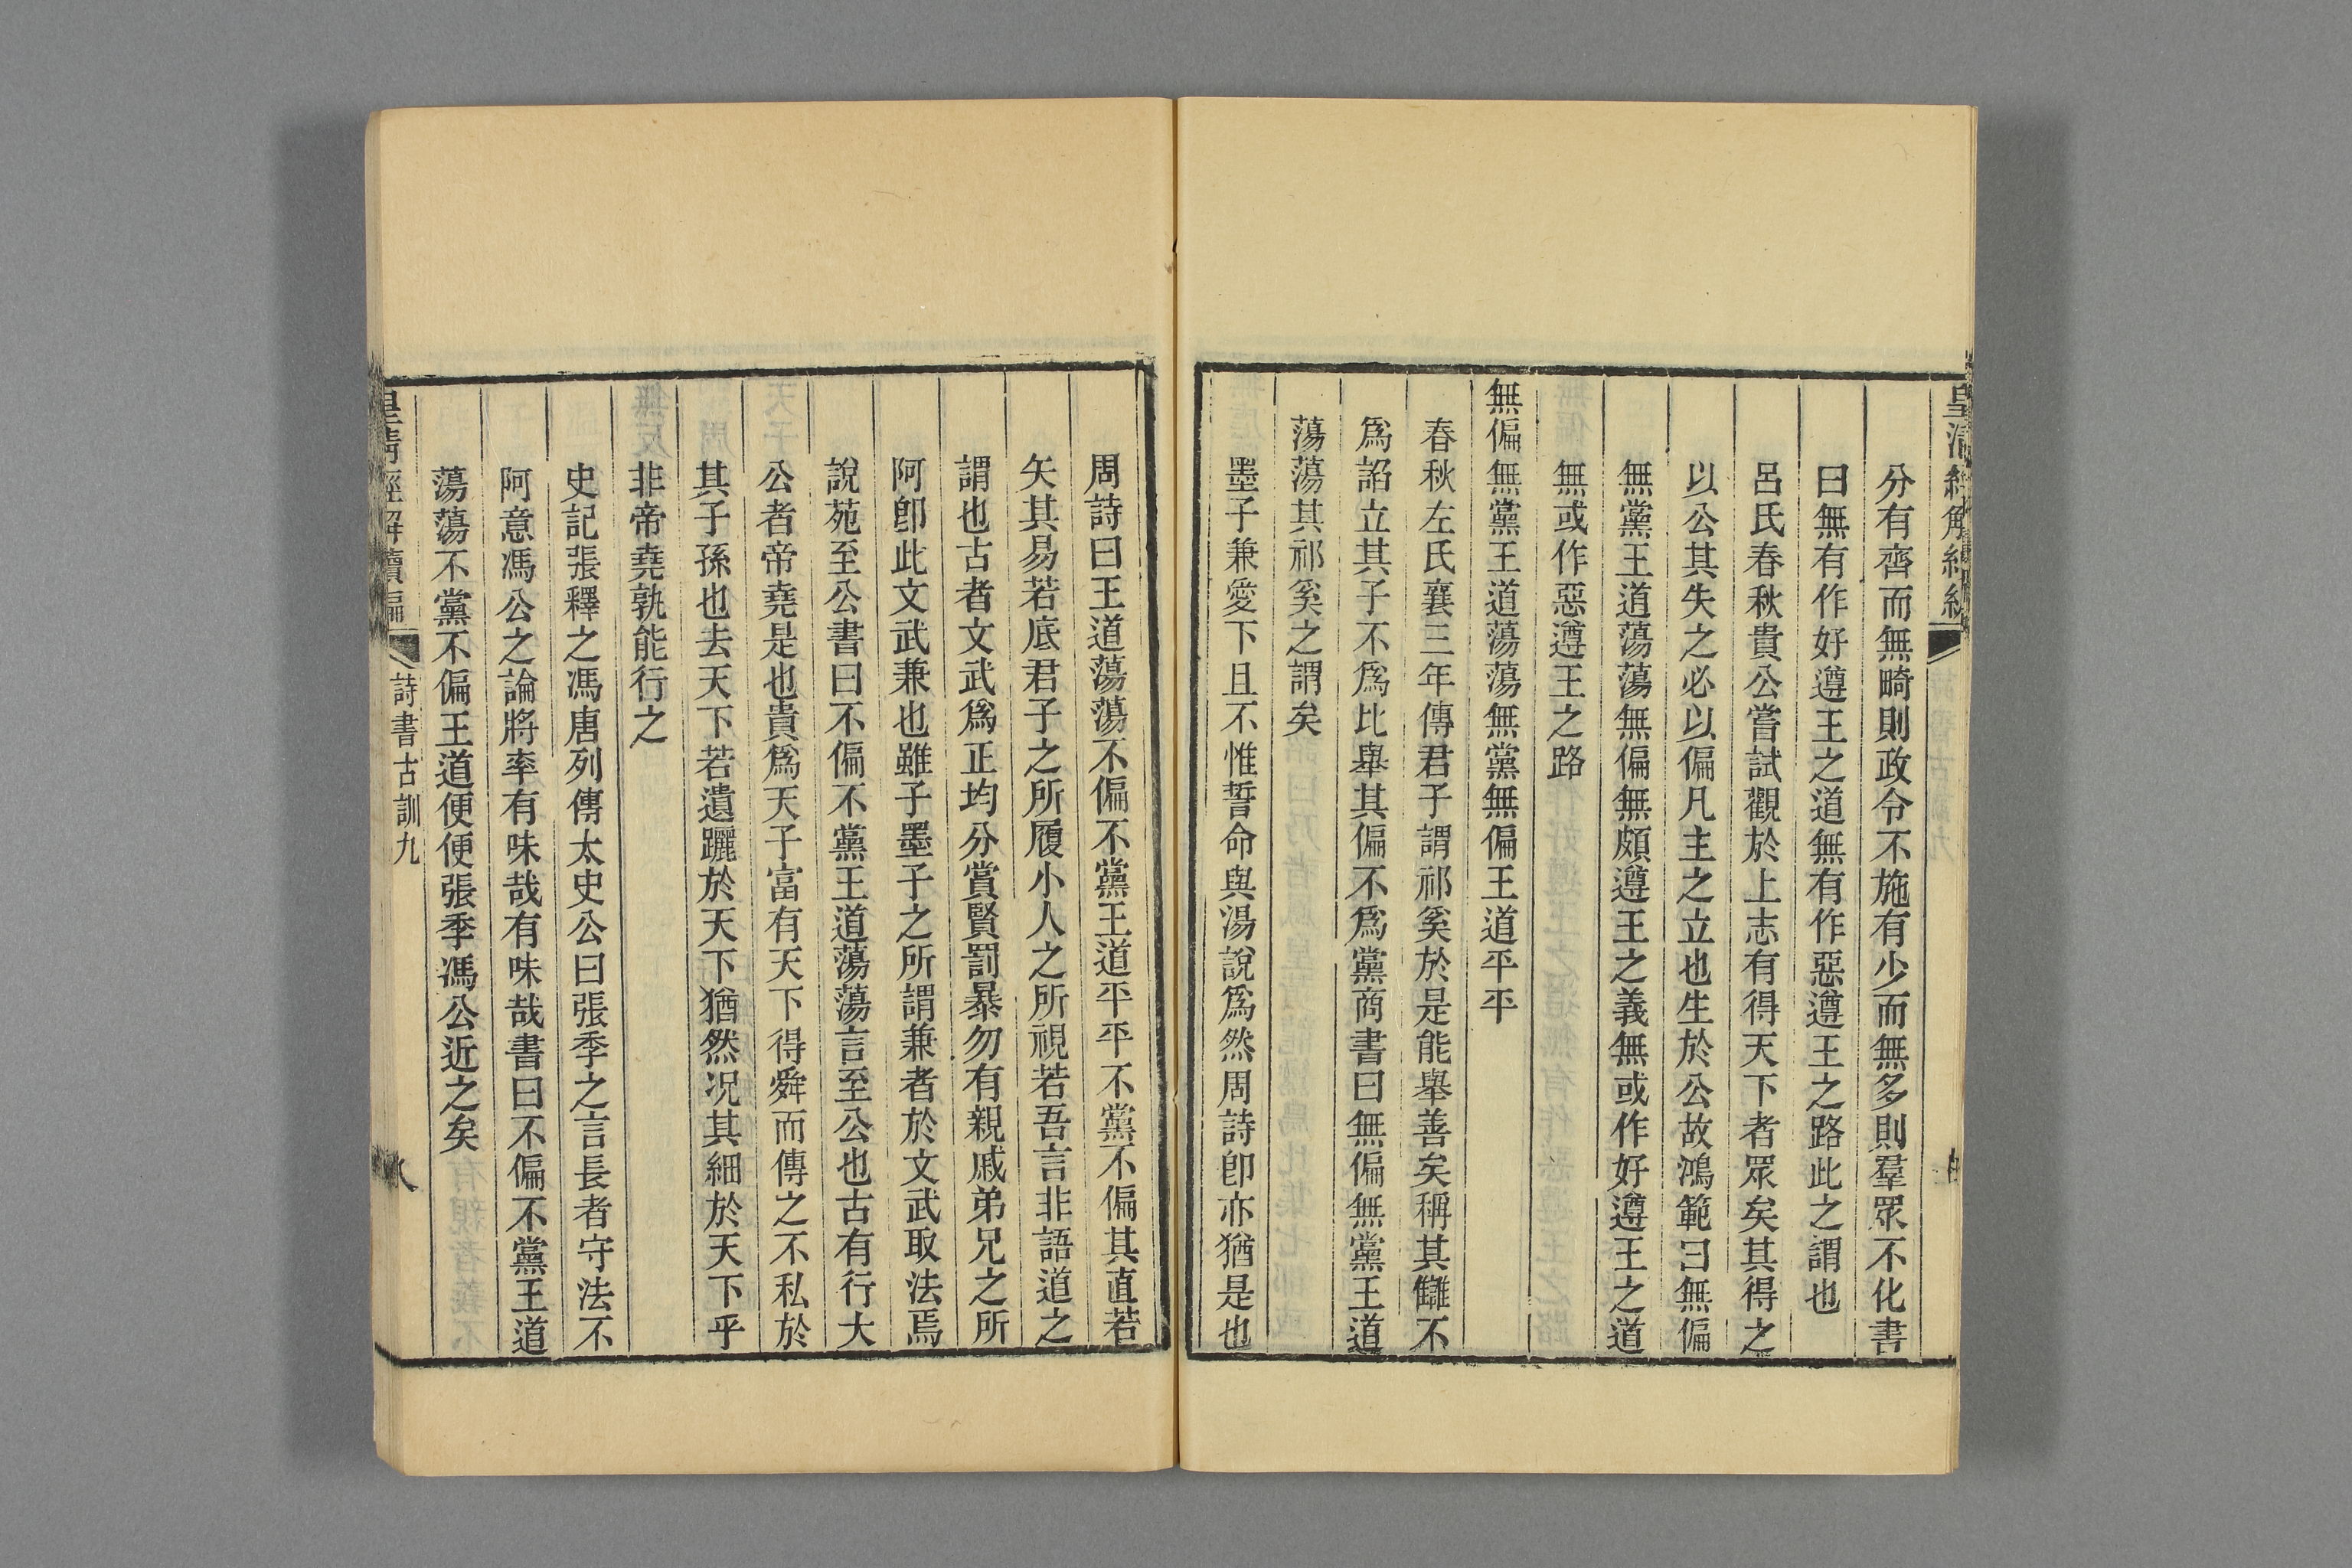 分有齊而無畸則政令不施有少而無多則羣眾不化書
曰無有作好遵王之道無有作惡遵王之路此之謂也
呂氏春秋貴公嘗試觀於上志有得天下者眾矣其得之
以公其失之必以偏凡主之立也生於公故鴻範曰無偏
無黨王道蕩蕩無偏無頗遵王之義無或作好遵王之道
無或作惡遵王之路
無偏無黨王道蕩蕩無黨無偏王道平平
春秋左氏襄三年傳君子謂祁奚於是能舉善矣稱其讎不
爲諂立其子不爲比舉其偏不爲黨商書曰無偏無黨王道
蕩蕩其祁奚之謂矣
墨子兼愛下且不惟誓命與湯說爲然周詩卽亦猶是也
周詩曰王道蕩蕩不偏不黨王道平平不黨不偏其直若
矢其易若底君子之所履小人之所視若吾言非語道之
謂也古者文武爲正均分賞賢罰暴勿有親戚弟兄之所
阿卽此文武兼也雖子墨子之所謂兼者於文武取法焉
說苑至公書曰不偏不黨王道蕩蕩言至公也古有行大
公者帝堯是也貴爲天子富有天下得舜而傳之不私於
其子孫也去天下若遺躧於天下猶然况其細於天下乎
非帝堯孰能行之
史記張釋之馮唐列傳太史公曰張季之言長者守法不
阿意馮公之論將率有味哉有味哉書曰不偏不黨王道
蕩蕩不黨不偏王道便便張季馮公近之矣
皇清經解續編
詩書古訓九